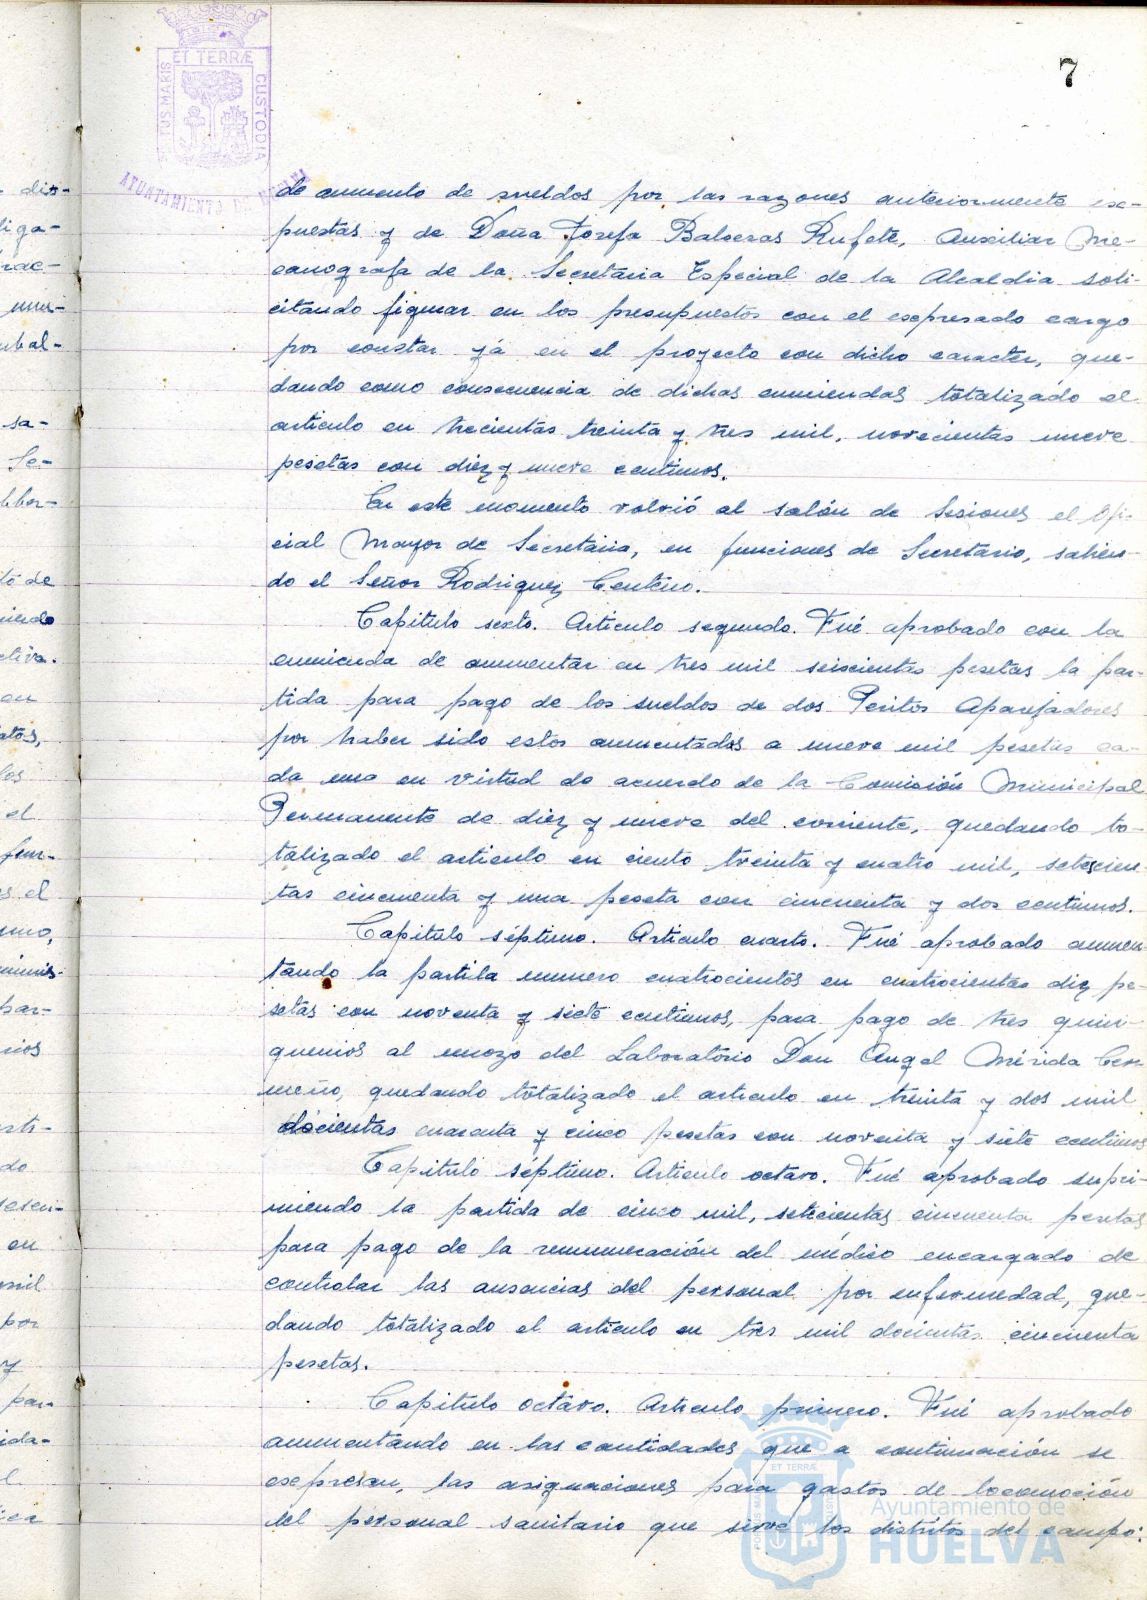 7
PORTUS MARIS ET TERRÆ CUSTODIA
AYUNTAMIENTO DE HUELVA
de aumento de sueldos por las razones anteriormente ex-
puestas y de Doña Josefa Balseras Rufete, Auxiliar Me-
canografa de la Secretaria Especial de la Alcaldia soli-
citando figurar en los presupuestos con el expresado cargo
por constar yá en el proyecto con dicho caracter, que-
dando como consecuencia de dichas enmiendas totalizado el
articulo en trecientas treinta y tres mil, novecientas nueve
pesetas con diez y nueve centimos.
En este momento volvió al salón de Sesiones el Ofi-
cial Mayor de Secretaria, en funciones de Secretario, salien-
do el Señor Rodriguez Centeno.
Capitulo sexto. Articulo segundo. Fué aprobado con la
enmienda de aumentar en tres mil seiscientas pesetas la par-
tida para pago de los sueldos de dos Peritos Aparejadores
por haber sido estos aumentados a nueve mil pesetas ca-
da uno en virtud de acuerdo de la Comisión Municipal
Permanente de diez y nueve del corriente, quedando to-
talizado el articulo en ciento treinta y cuatro mil, setecien-
tas cincuenta y una peseta con cincuenta y dos centimos.
Capitulo séptimo. Articulo cuarto. Fué aprobado aumen
tando la partida numero cuatrocientos en cuatrocientas diez pe-
setas con noventa y siete centimos, para pago de tres quin-
quenios al mozo del Laboratorio Don Angel Mérida Cer
meño, quedando totalizado el articulo en treinta y dos mil
docientas cuarenta y cinco pesetas con noventa y siete centimos
Capitulo séptimo. Articulo octavo. Fué aprobado supri-
miendo la partida de cinco mil, setecientas cincuenta pesetas
para pago de la remuneración del médico encargado de
controlar las ausencias del personal por enfermedad, que-
dando totalizado el articulo en tres mil docientas cincuenta
pesetas.
Capitulo octavo. Articulo primero. Fué aprobado
aumentando en las cantidades que a continuación se
expresan, las asignaciones para gastos de locomoción
del personal sanitario que sirve los distritos del campo:
Ayuntamiento de
HUELVA